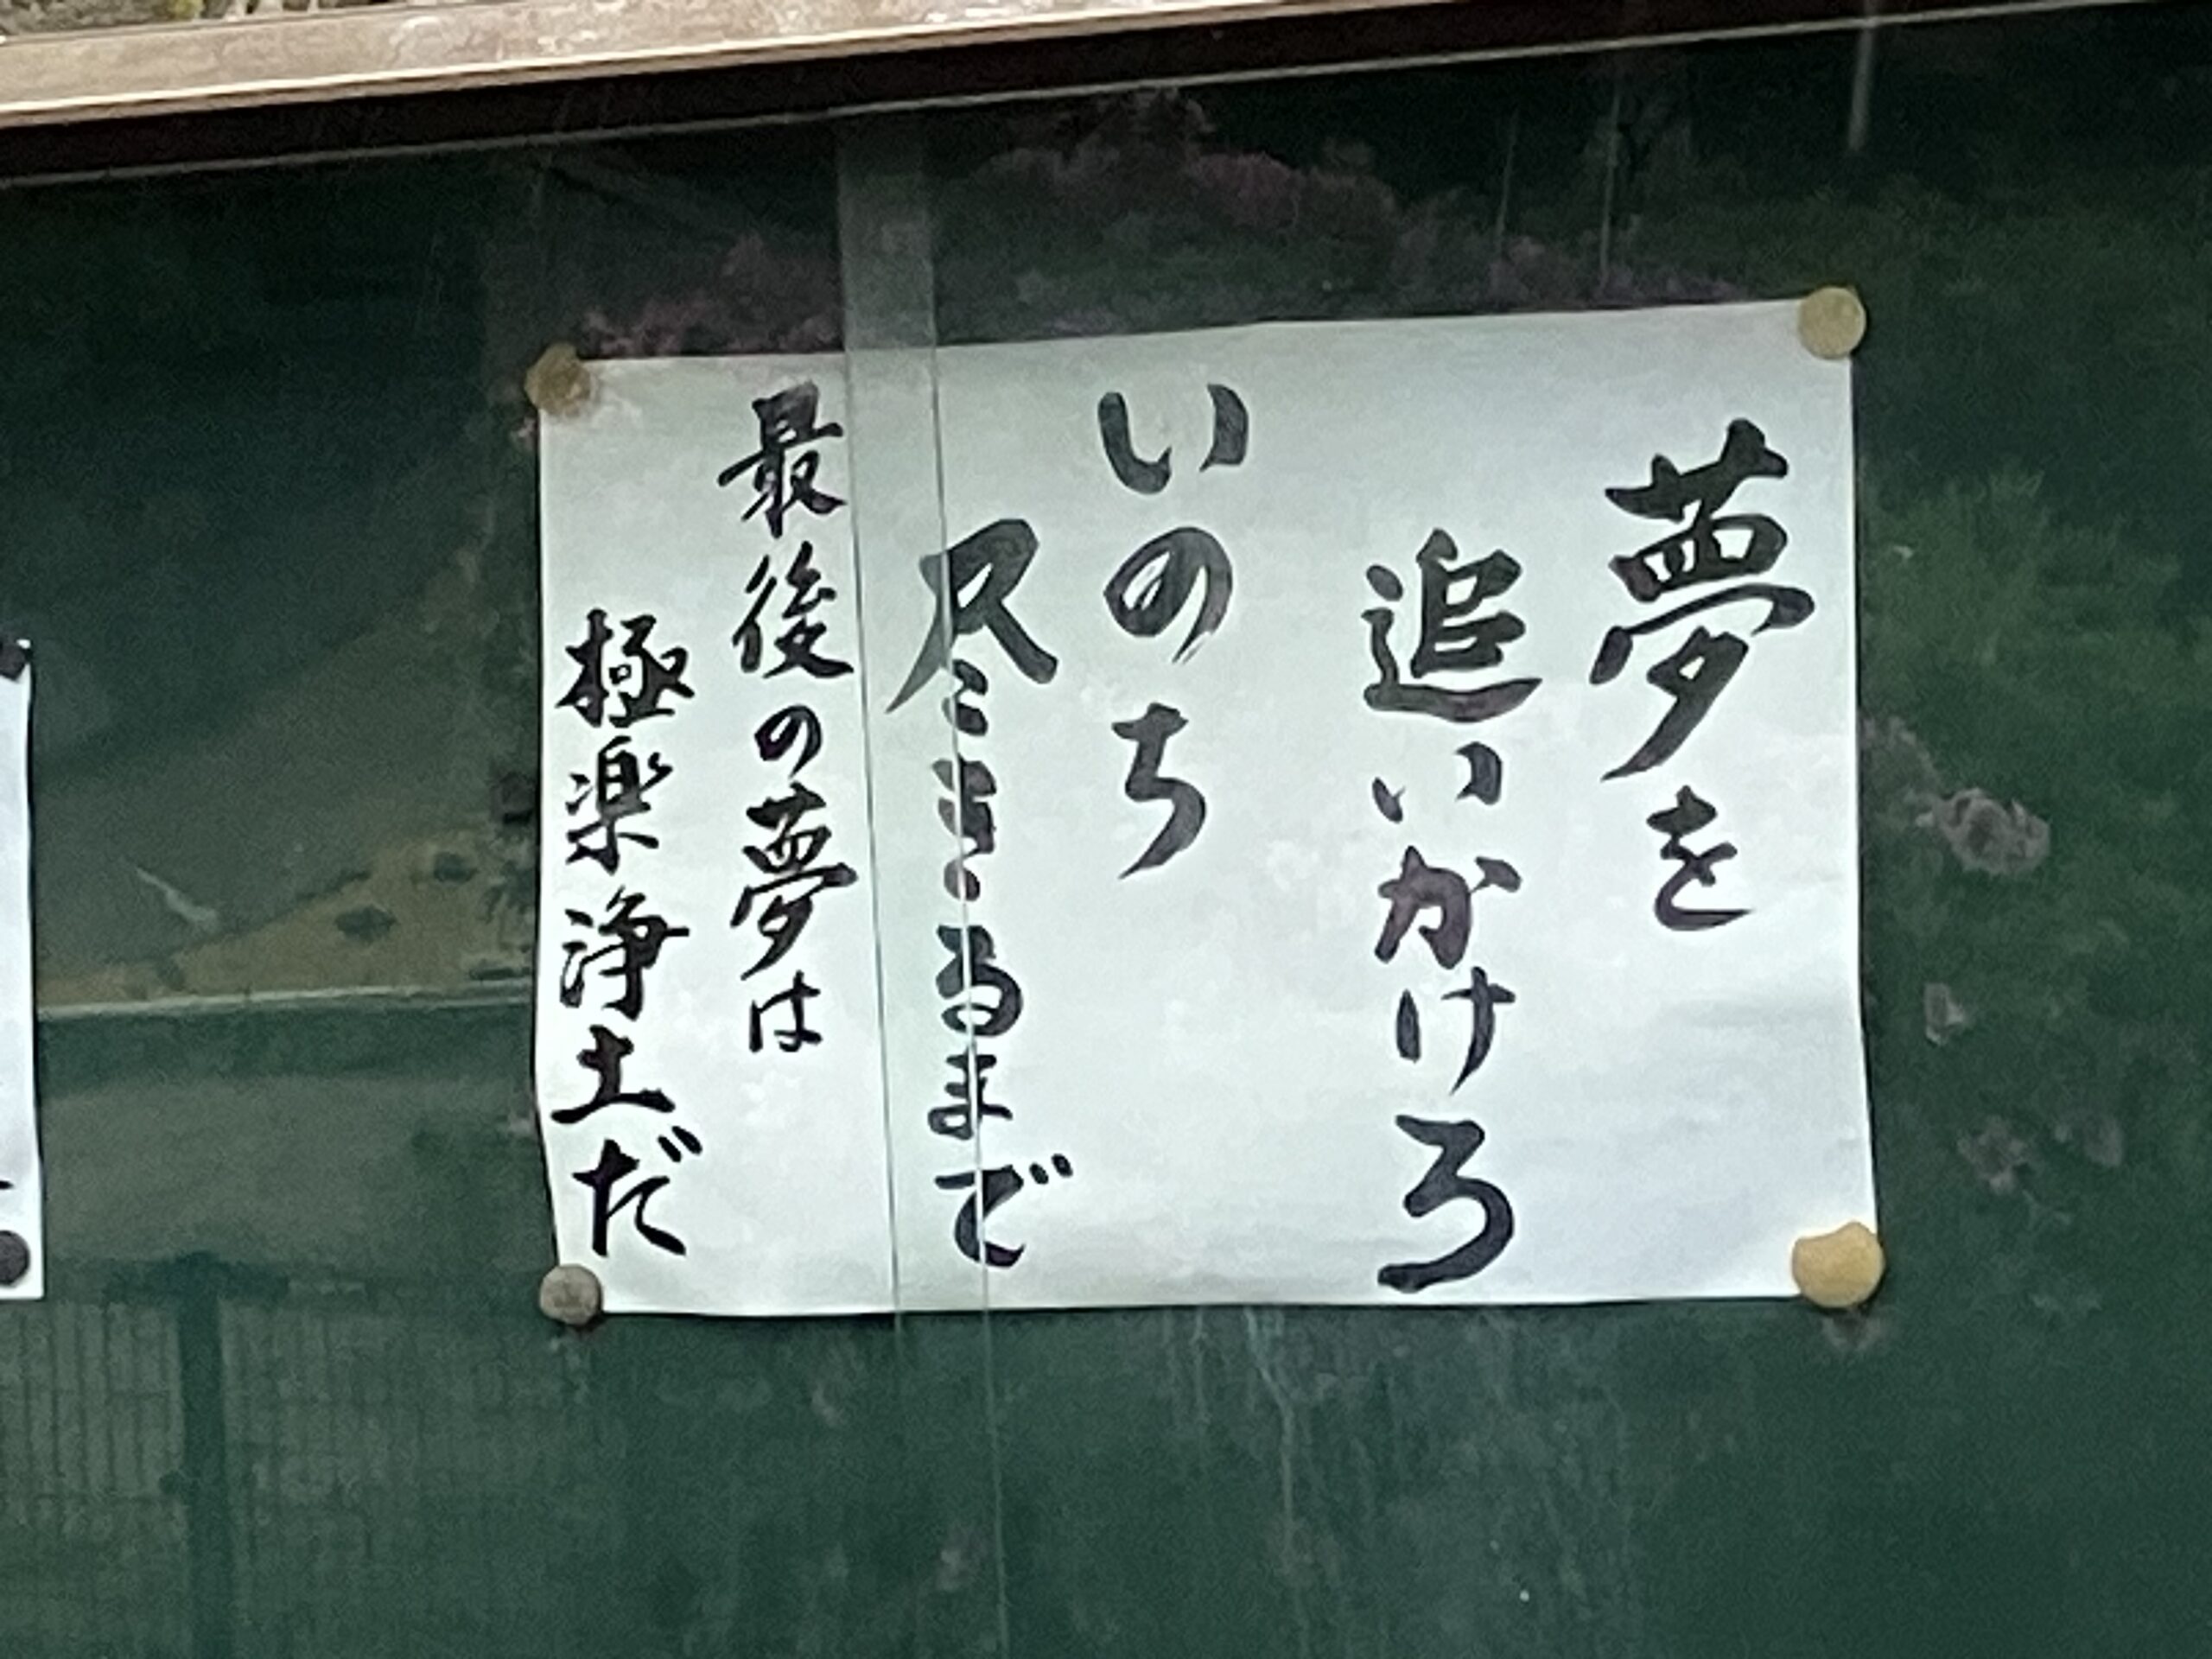 夢を
追いかけろ
いのち
尽きるまで
最後の夢は
極楽浄土だ